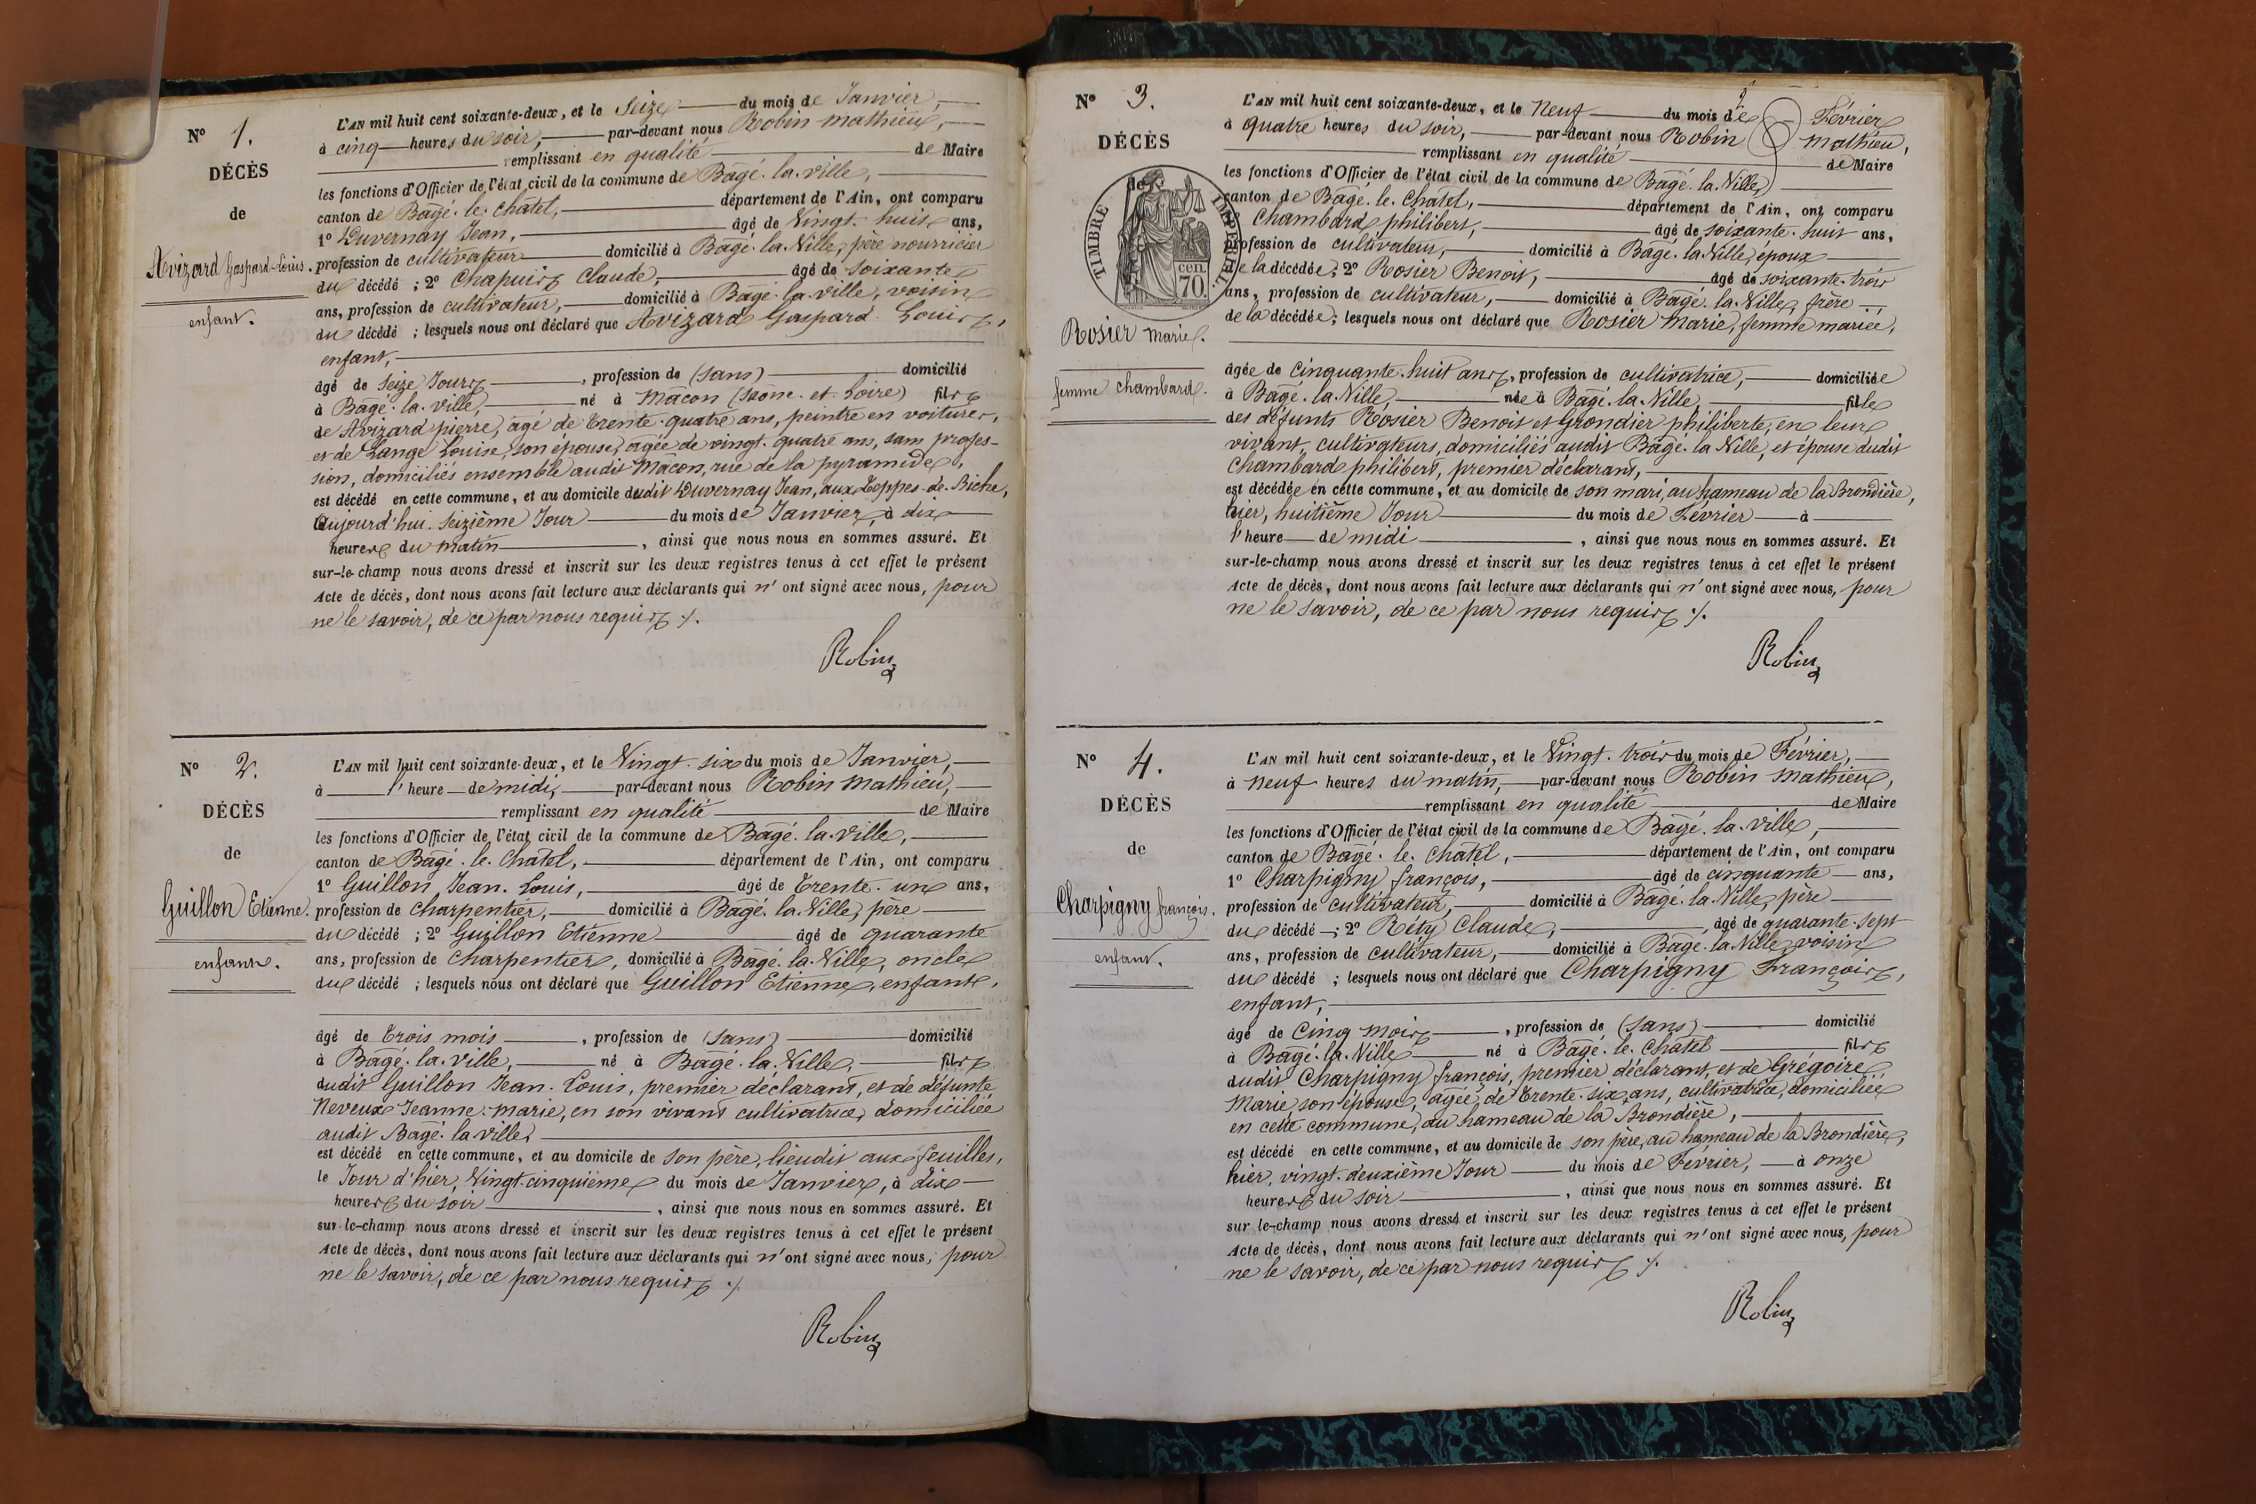 N° 1.
DÉCÈS
de
Avizard Gaspard-Louis.
enfant.
L'AN mil huit cent soixante-deux, et le Seize du mois de Janvier,
à cinq heures du soir, par-devant nous Robin Mathieu,
remplissant en qualité de Maire
les fonctions d'Officier de l'état civil de la commune de Bâgé-la-Ville,
canton de Bâgé-le-Châtel, département de l'Ain, ont comparu
1° Duvernay Jean, âgé de Vingt-huit ans,
profession de cultivateur domicilié à Bâgé-la-Ville, père nourricier
du décédé ; 2° Chapuis Claude, âgé de soixante
ans, profession de cultivateur, domicilié à Bâgé-la-ville, voisin
du décédé ; lesquels nous ont déclaré que Avizard Gaspard Louis,
enfant,
âgé de seize Jours, profession de (sans) domicilié
à Bâgé-la-ville, né à Mâcon (Saône-et-Loire) fils
de Avizard pierre, âgé de trente-quatre ans, peintre en voitures,
et de Lange Louise, son épouse, âgée de vingt-quatre ans, sans profes-
sion, domiciliés ensemble audit Mâcon, rue de la pyramide,
est décédé en cette commune, et au domicile dudit Duvernay Jean, aux Loppes-de-Biche,
aujourd'hui seizième Jour du mois de Janvier, à dix
heures du matin, ainsi que nous nous en sommes assuré. Et
sur-le-champ nous avons dressé et inscrit sur les deux registres tenus à cet effet le présent
Acte de décès, dont nous avons fait lecture aux déclarants qui n'ont signé avec nous, pour
ne le savoir, de ce par nous requis ./.
Robin
N° 2.
DÉCÈS
de
Guillon Etienne.
enfant.
L'AN mil huit cent soixante-deux, et le Vingt-six du mois de Janvier,
à l'heure de midi, par-devant nous Robin Mathieu,
remplissant en qualité de Maire
les fonctions d'Officier de l'état civil de la commune de Bâgé-la-ville,
canton de Bâgé-le-Châtel, département de l'Ain, ont comparu
1° Guillon Jean-Louis, âgé de trente-un ans,
profession de charpentier, domicilié à Bâgé-la-Ville, père
du décédé ; 2° Guillon Etienne âgé de quarante
ans, profession de charpentier, domicilié à Bâgé-la-Ville, oncle
du décédé ; lesquels nous ont déclaré que Guillon Etienne, enfant,
âgé de trois mois, profession de (sans) domicilié
à Bâgé-la-ville, né à Bâgé-la-Ville, fils
dudit Guillon Jean-Louis, premier déclarant, et de défunte
Neveux Jeanne-marie, en son vivant cultivatrice, domiciliée
audit Bâgé-la-ville,
est décédé en cette commune, et au domicile de son père, lieudit aux feuilles,
le Jour d'hier, Vingt-cinquième du mois de Janvier, à dix
heures du soir, ainsi que nous nous en sommes assuré. Et
sur-le-champ nous avons dressé et inscrit sur les deux registres tenus à cet effet le présent
Acte de décès, dont nous avons fait lecture aux déclarants qui n'ont signé avec nous, pour
ne le savoir, de ce par nous requis ./.
Robin
2
N° 3.
DÉCÈS
de
TIMBRE IMPÉRIAL.
70 cen.
Rosier Marie.
femme chambard.
L'AN mil huit cent soixante-deux, et le Neuf du mois de Février
à quatre heures du soir, par-devant nous Robin Mathieu,
remplissant en qualité de Maire
les fonctions d'Officier de l'état civil de la commune de Bâgé-la-Ville,
canton de Bâgé-le-Châtel, département de l'Ain, ont comparu
Chambard philibert, âgé de soixante-huit ans,
profession de cultivateur, domicilié à Bâgé-la-Ville, époux
de la décédée ; 2° Rosier Benoit, âgé de soixante-trois
ans, profession de cultivateur, domicilié à Bâgé-la-Ville, frère
de la décédée ; lesquels nous ont déclaré que Rosier Marie, femme mariée,
âgée de cinquante-huit ans, profession de cultivatrice, domiciliée
à Bâgé-la-Ville, née à Bâgé-la-Ville, fille
des défunts Rosier Benoit et Grondier philiberte, en leur
vivant cultivateurs, domiciliés audit Bâgé-la-Ville, et épouse dudit
Chambard philibert, premier déclarant,
est décédée en cette commune, et au domicile de son mari, au hameau de la Brondière,
hier, huitième Jour du mois de Février à
l'heure de midi, ainsi que nous nous en sommes assuré. Et
sur-le-champ nous avons dressé et inscrit sur les deux registres tenus à cet effet le présent
Acte de décès, dont nous avons fait lecture aux déclarants qui n'ont signé avec nous, pour
ne le savoir, de ce par nous requis ./.
Robin
N° 4.
DÉCÈS
de
Charpigny françois.
enfant.
L'AN mil huit cent soixante-deux, et le Vingt-trois du mois de Février,
à neuf heures du matin, par-devant nous Robin Mathieu,
remplissant en qualité de Maire
les fonctions d'Officier de l'état civil de la commune de Bâgé-la-ville,
canton de Bâgé-le-Châtel, département de l'Ain, ont comparu
1° Charpigny françois, âgé de cinquante ans,
profession de cultivateur, domicilié à Bâgé-la-Ville, père
du décédé ; 2° Réty Claude, âgé de quarante-sept
ans, profession de cultivateur, domicilié à Bâgé-la-Ville, voisin
du décédé ; lesquels nous ont déclaré que Charpigny François,
enfant,
âgé de Cinq mois, profession de (sans) domicilié
à Bâgé-la-Ville né à Bâgé-le-Châtel fils
dudit Charpigny françois, premier déclarant, et de Grégoire
Marie, son épouse, âgée de trente-six ans, cultivatrice, domiciliée
en cette commune, au hameau de la Brondière,
est décédé en cette commune, et au domicile de son père, au hameau de la Brondière,
hier, vingt-deuxième Jour du mois de Février, à onze
heures du soir, ainsi que nous nous en sommes assuré. Et
sur-le-champ nous avons dressé et inscrit sur les deux registres tenus à cet effet le présent
Acte de décès, dont nous avons fait lecture aux déclarants qui n'ont signé avec nous, pour
ne le savoir, de ce par nous requis ./.
Robin